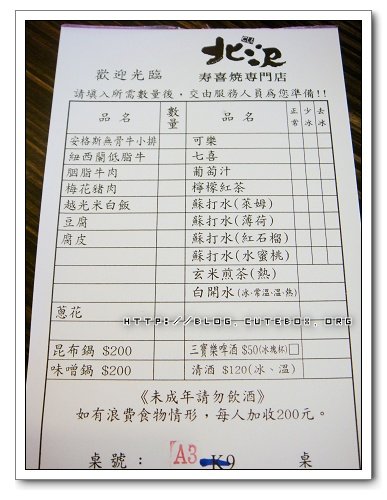 北澤
歡迎光臨
寿喜燒專門店
請填入所需數量後，交由服務人員為您準備!!
品名 數量 品名 正常 少冰 去冰
安格斯無骨牛小排 可樂
紐西蘭低脂牛 七喜
胭脂牛肉 葡萄汁
梅花豬肉 檸檬紅茶
越光米白飯 蘇打水(萊姆)
豆腐 蘇打水(薄荷)
腐皮 蘇打水(紅石榴)
蘇打水(水蜜桃)
玄米煎茶(熱)
白開水(冰·常溫·溫·熱)
蔥花
HTTP://BLOG.CUTEBOX.ORG
昆布鍋 $200 三寶樂啤酒 $50(冰塊杯)□
味噌鍋 $200 清酒 $120(冰、溫)
《未成年請勿飲酒》
如有浪費食物情形，每人加收200元。
桌號： A3 K9 桌